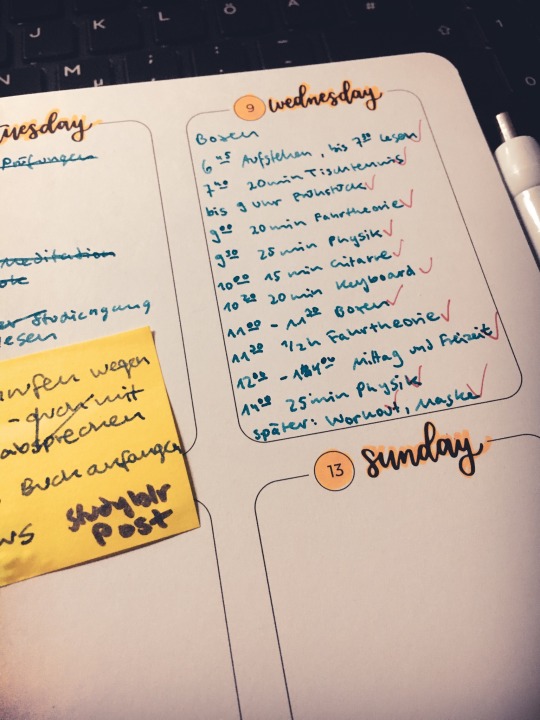 J K L Ö Ä
N M ; :
tuesday
Prüfungen
Meditation
Studiengang
lesen
wegen
- auch mit
absprechen
Buch anfangen
studyblr
post
9 wednesday
Boxen
6 45 Aufstehen, bis 7 30 lesen
7 40 20 min Tischtennis
bis 9 Uhr Frühstück
9 00 20 min Fahrtheorie
9 30 25 min Physik
10 00 15 min Gitarre
10 20 20 min Keyboard
11 00 - 11 20 Boxen
11 20 1/2 h Fahrtheorie
12 00 - 14 00 Mittag und Freizeit
14 00 25 min Physik
später: Workout, Maske
13 sunday